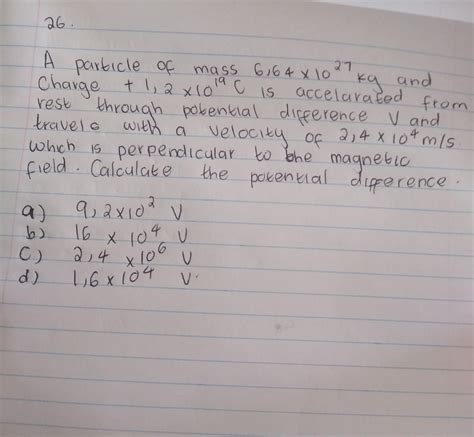 26.
A particle of mass 6,64 x 10²⁷ kg and
Charge + 1,2 x10¹⁹ C is accelarated from
rest through potential difference V and
travels with a velocity of 2,4 x 10⁴ m/s
which is perpendicular to the magnetic
field. Calculate the potential difference.
a) 9,2x10² V
b) 16 x 10⁴ V
c) 2,4 x 10⁶ V
d) 1,6 x 10⁴ V.